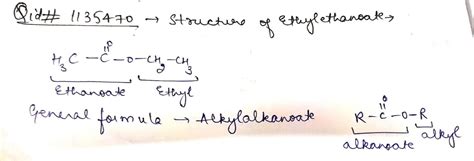 Qid# 1135470 → Structure of Ethylethanoate →
O
H3C – C – O – CH2 – CH3
Ethanoate Ethyl
General formula → Alkylalkanoate
O
R – C – O – R
alkanoate alkyl